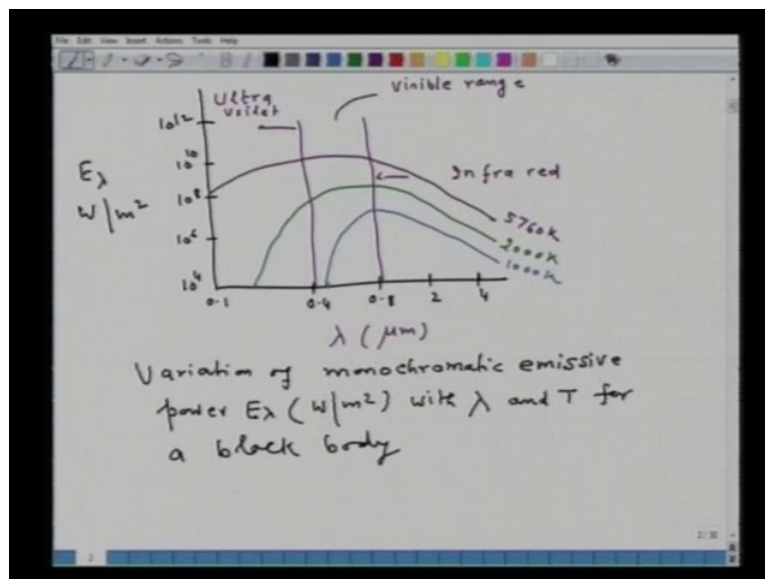 File Edit View Insert Actions Tools Help
Ultra
Voilet
Visible range
10^12
10^10
10^8
10^6
10^4
Eλ
W/m²
Infra red
5760K
2000K
1000K
0.1
0.4
0.8
2
4
λ (μm)
Variation of monochromatic emissive
power Eλ (W/m²) with λ and T for
a black body
2